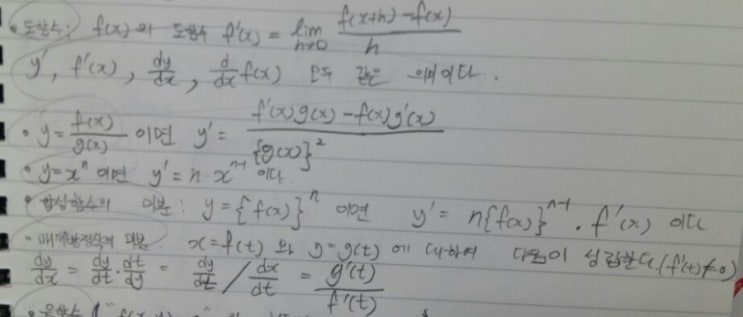 • 도함수: f(x)의 도함수 f'(x) = lim h→0 f(x+h)-f(x) / h
y', f'(x), dy/dx, d/dx f(x) 모두 같은 의미이다.
• y = f(x)/g(x) 이면 y' = f'(x)g(x)-f(x)g'(x) / {g(x)}²
• y=xⁿ 이면 y' = n·xⁿ⁻¹ 이다
• 합성함수의 미분: y={f(x)}ⁿ 이면 y' = n{f(x)}ⁿ⁻¹·f'(x) 이다
• 매개방정식의 미분: x=f(t) 와 y=g(t) 에 대하여 다음이 성립한다.(f'(t)≠0)
dy/dx = dy/dt · dt/dy = dy/dt / dx/dt = g'(t)/f'(t)
• 음함수